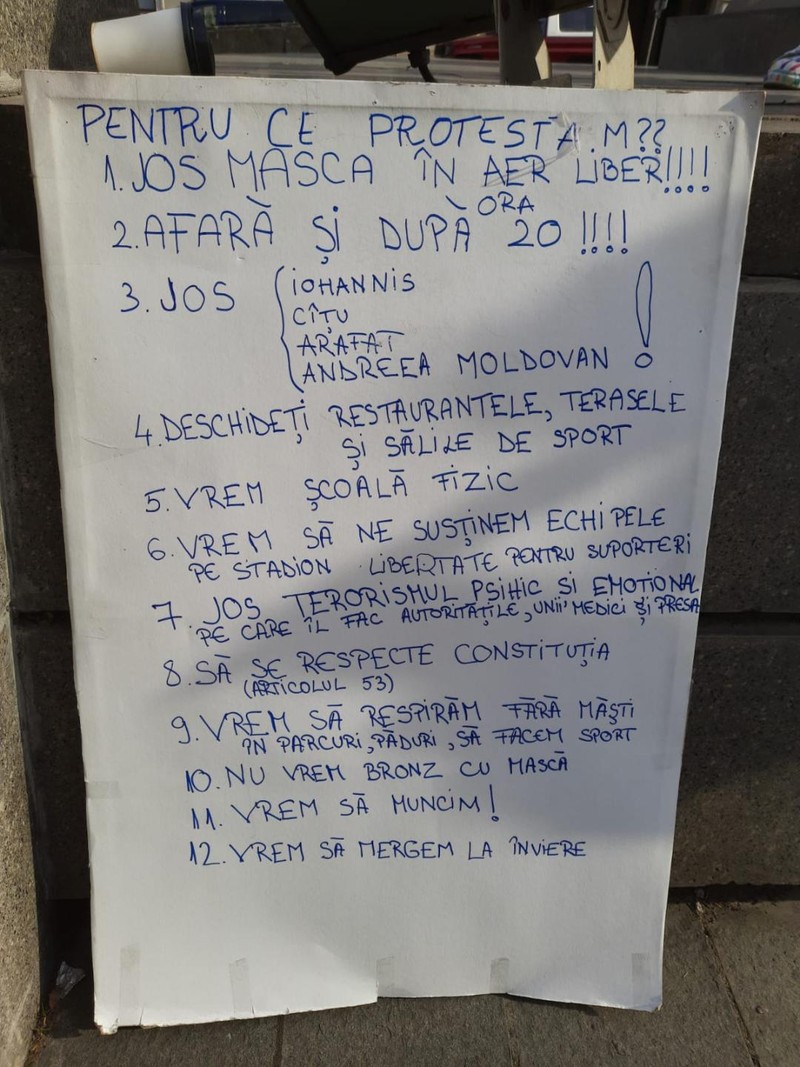 PENTRU CE PROTESTA.M??
1. JOS MASCA ÎN AER LIBER!!!!
2. AFARĂ ȘI DUPĂ ORA 20 !!!!
3. JOS IOHANNIS
CÎȚU
ARAFAT
ANDREEA MOLDOVAN !
4. DESCHIDEȚI RESTAURANTELE, TERASELE
ȘI SĂLILE DE SPORT
5. VREM ȘCOALĂ FIZIC
6. VREM SĂ NE SUSȚINEM ECHIPELE
PE STADION LIBERTATE PENTRU SUPORTERI
7. JOS TERORISMUL PSIHIC SI EMOȚIONAL
PE CARE ÎL FAC AUTORITĂȚILE, UNII MEDICI ȘI PRESA
8. SĂ SE RESPECTE CONSTITUȚIA
(ARTICOLUL 53)
9. VREM SĂ RESPIRĂM FĂRĂ MĂȘTI
ÎN PARCURI, PĂDURI, SĂ FACEM SPORT
10. NU VREM BRONZ CU MASCĂ
11. VREM SĂ MUNCIM!
12. VREM SĂ MERGEM LA ÎNVIERE